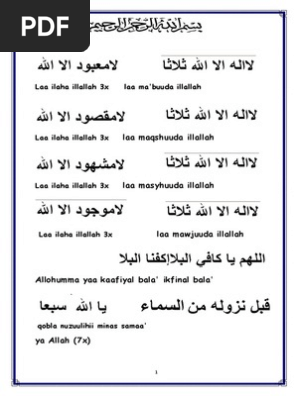 PDF
بسم الله الرحمن الرحيم
لااله الا الله ثلاثا لامعبود الا الله
Laa ilaha illallah 3x laa ma'buuda illallah
لااله الا الله ثلاثا لامقصود الا الله
Laa ilaha illallah 3x laa maqshuuda illallah
لااله الا الله ثلاثا لامشهود الا الله
Laa ilaha illallah 3x laa masyhuuda illallah
لااله الا الله ثلاثا لاموجود الا الله
Laa ilaha illallah 3x laa mawjuuda illallah
اللهم يا كافي البلاإكفنا البلا
Allohumma yaa kaafiyal bala' ikfinal bala'
قبل نزوله من السماء يا الله سبعا
qobla nuzuulihii minas samaa'
ya Allah (7x)
1